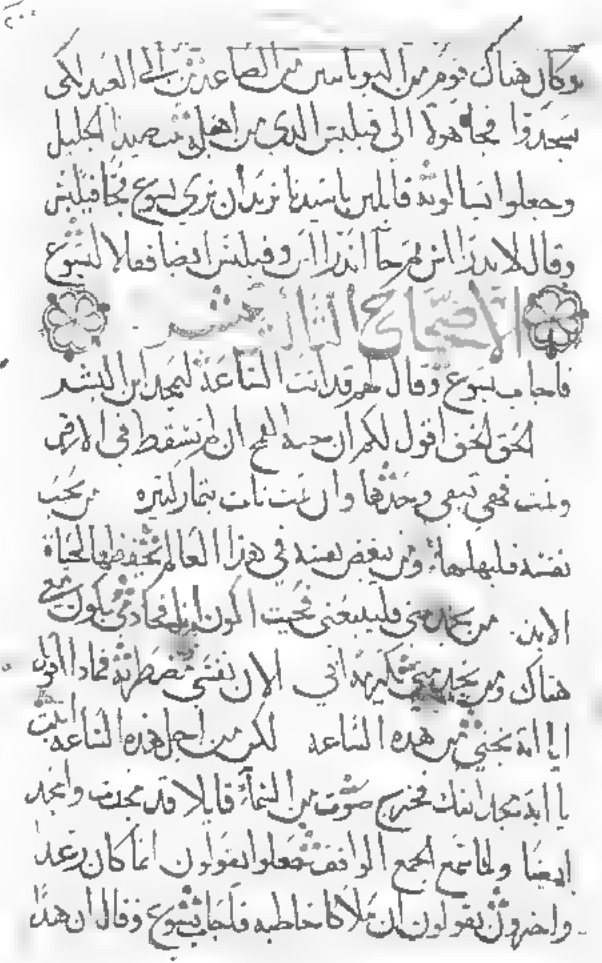 ٢٠٠
وكان هناك قوم من اليونانيين من الصاعدين الى العيد لكى
يسجدوا فجا هولا الى فيلبس الذي من اهل بيت صيدا الجليل
وجعلوا يسالونه قايلين ياسيدنا نريد ان نري يسوع فجا فيلبس
وقال لاندراس ثم جا اندراس وفيلبس ايضا فقالا ليسوع
الاصحاح الثالث عشر
فاجاب يسوع وقال لهم قد اتت الساعة ليمجد ابن البشر
الحق الحق اقول لكم ان حبة القمح ان لم تسقط في الارض
وتمت فهي تبقي وحدها وان تمت تات بثمار كثيره من يحب
نفسه فليهلكها ومن يبغض نفسه في هذا العالم يحفظها لحياة
الابد من يخدمني فليتبعني فحيث اكون انا فخادمي يكون معي
هناك ومن يخدمني يكرمه ابي الان نفسي مضطربة فماذا اقول
يا ابة نجني من هذه الساعه لكن من اجل هذه الساعة اتيت
يا ابة مجد ابنك فخرج صوت من السما قايلا قد مجدت وامجد
ايضا ولما سمع الجمع الواقف جعلوا يقولون انما كان رعد
واخرون يقولون ان ملاكا خاطبه فاجاب يسوع وقال ان هذا